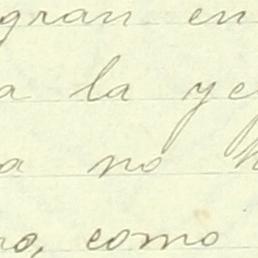 gran en
a la ye
a no h
ro, como